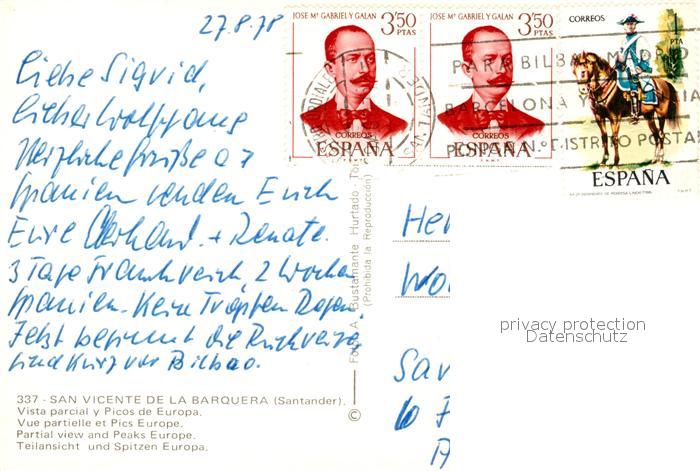 27.8.78
Liebe Sigrid,
lieber Wolfgang
Herzliche Grüße a
Spanien senden Euch
Eure + Renate.
3 Tage Frankreich, 2 Wochen
Spanien. Kein Tropfen Regen.
Jetzt beginnt die Rückreise
sind kurz vor Bilbao.
337 - SAN VICENTE DE LA BARQUERA (Santander).
Vista parcial y Picos de Europa.
Vue partielle et Pics Europe.
Partial view and Peaks Europe.
Teilansicht und Spitzen Europa.
©
Foto A. Bustamante Hurtado - Tor
(Prohibida la Reproducción)
JOSE Mª GABRIEL Y GALAN
3'50
PTAS
CORREOS
ESPAÑA
JOSE Mª GABRIEL Y GALAN
3'50
PTAS
CORREOS
ESPAÑA
CORREOS
1
PTA
ESPAÑA
PARA BILBAO MADRID
BARCELONA Y
PONGA N.º DISTRITO POSTAL
Her
Wo
Sav
6 F
privacy protection
Datenschutz